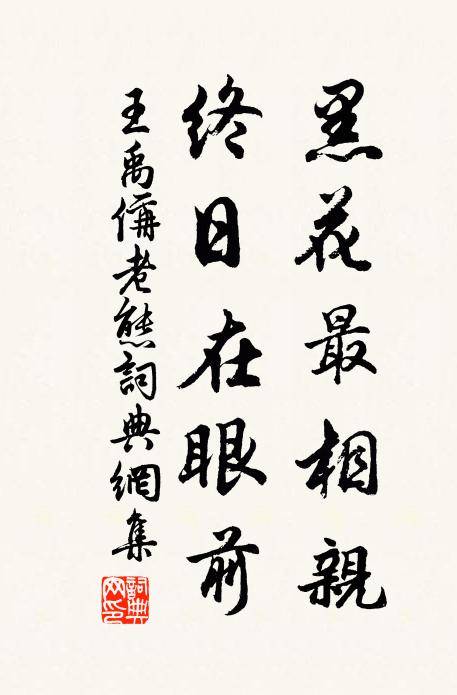 黑花最相親
終日在眼前
王禹偁老態詞典網集
詞典網印